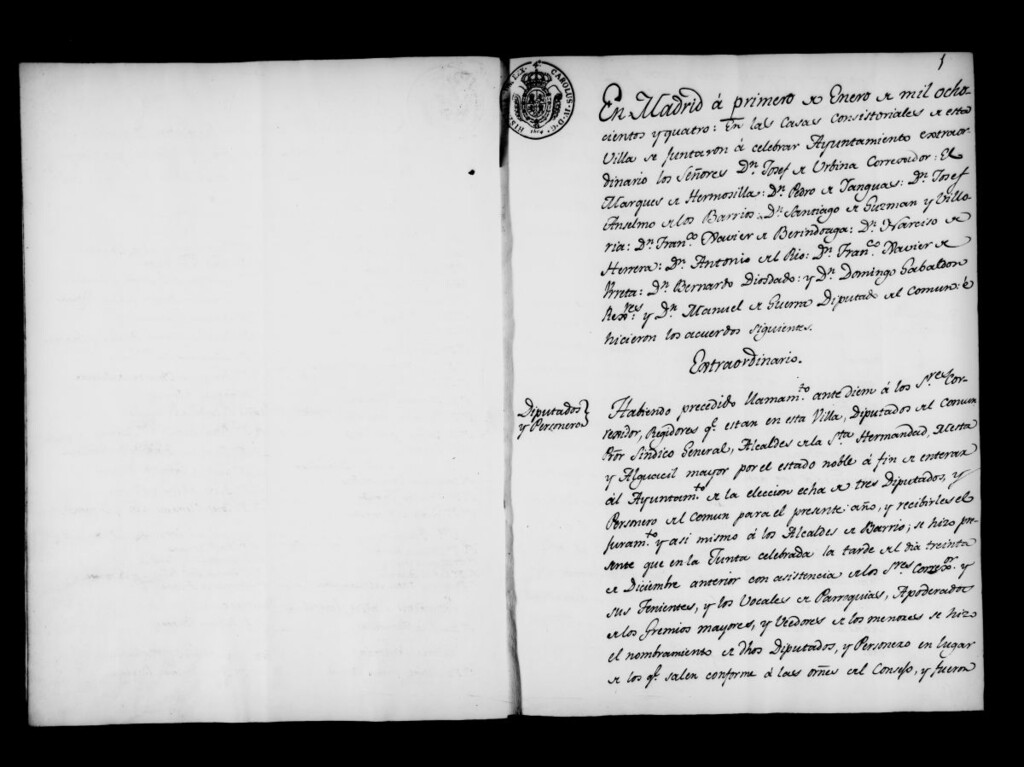 1
CAROLUS IV D G HISP REX
En Madrid á primero de Enero de mil ocho-
cientos y quatro: En las Casas Consistoriales de esta
Villa se juntaron á celebrar Ayuntamiento extraor-
dinario los Señores Dn. Josef de Urbina Corregidor: El
Marques de Hermosilla: Dn. Pedro de Yanguas: Dn. Josef
Anselmo de los Barrios: Dn. Santiago de Guzman y Villo-
ria: Dn. Franco. Xavier de Berindoaga: Dn. Narciso de
Herrera: Dn. Antonio del Rio: Dn. Franco. Xavier de
Dn. Bernardo Diosdado: y Dn. Domingo Gabaldon
y Dn. Manuel de Guerra Diputado del Comun: é
hicieron los acuerdos siguientes.
Extraordinario.
Diputados
y Personero
Habiendo precedido llamamto. ante diem á los Sres. Cor-
regidor, Regidores qe. estan en esta Villa, Diputados del Comun
Pror. Sindico General, Alcaldes de la Sta. Hermandad, Mesta
y Alguacil mayor por el estado noble á fin de enterar
ál Ayuntamto. de la eleccion echa de tres Diputados, y
Personero del Comun para el presente año, y recibirles el
juramto. y asi mismo á los Alcaldes de Barrio; se hizo pre-
sente que en la Junta celebrada la tarde del dia treinta
de Diciembre anterior con asistencia de los Sres. Corregor. y
sus Tenientes, y los Vocales de Parroquias, Apoderados
de los Gremios mayores, y Veedores de los menores se hizo
el nombramiento de dhos Diputados, y Personero en lugar
de los qe. salen conforme á las ornes del Consejo, y fueron